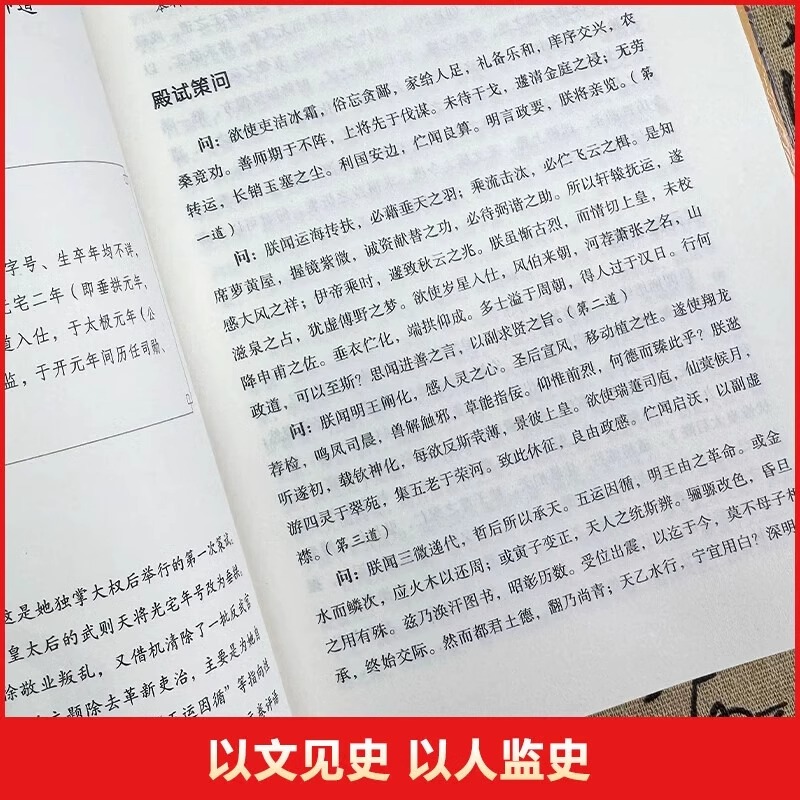 字号、生卒年均不详，
光宅二年（即垂拱元年，
道入仕，于太极元年（公
监，于开元年间历任司勋、
这是她独掌大权后举行的第一次策试。
皇太后的武则天将光宅年号改为垂拱，
徐敬业叛乱，又借机清除了一批反武官
主题除去革新吏治，主要是为她自
五运因循”等指向性
殿试策问
问：欲使吏洁冰霜，俗忘贪鄙，家给人足，礼备乐和，庠序交兴，农
桑竞劝。善师期于不阵，上将先于伐谋。未待干戈，遽清金庭之祲；无劳
转运，长销玉塞之尘。利国安边，伫闻良算。明言政要，朕将亲览。（第
一道）
问：朕闻运海抟扶，必藉垂天之羽；乘流击汰，必伫飞云之楫。是知
席萝黄屋，握镜紫微，诚资献替之功，必待弼谐之助。所以轩辕抚运，遂
感大风之祥；伊帝乘时，遽致秋云之兆。朕虽惭古烈，而情切上皇，未校
滋泉之占，犹虚傅野之梦。欲使岁星入仕，风伯来朝，河荐萧张之名，山
降申甫之佐。垂衣伫化，端拱仰成。多士溢于周朝，得人过于汉日。行何
政道，可以至斯？思闻进善之言，以副求贤之旨。（第二道）
问：朕闻明王阐化，感人灵之心。圣后宣风，移动植之性。遂使翔龙
荐检，鸣凤司晨，兽解触邪，草能指佞。仰惟前烈，何德而臻此乎？朕逖
听遂初，载钦神化，每欲反斯莪薄，景彼上皇。欲使瑞莚司庖，仙蓂候月，
游四灵于翠苑，集五老于荣河。致此休征，良由政感。伫闻启沃，以副虚
襟。（第三道）
问：朕闻三微递代，哲后所以承天。五运因循，明王由之革命。或金
水而鳞次，应火木以还周；或寅子变正，天人之统斯辨。骊骕改色，昏旦
之用有殊。兹乃涣汗图书，昭彰历数。受位出震，以迄于今，莫不母子相
承，终始交际。然而都君土德，翻乃尚青；天乙水行，宁宜用白？深明
以文见史 以人监史